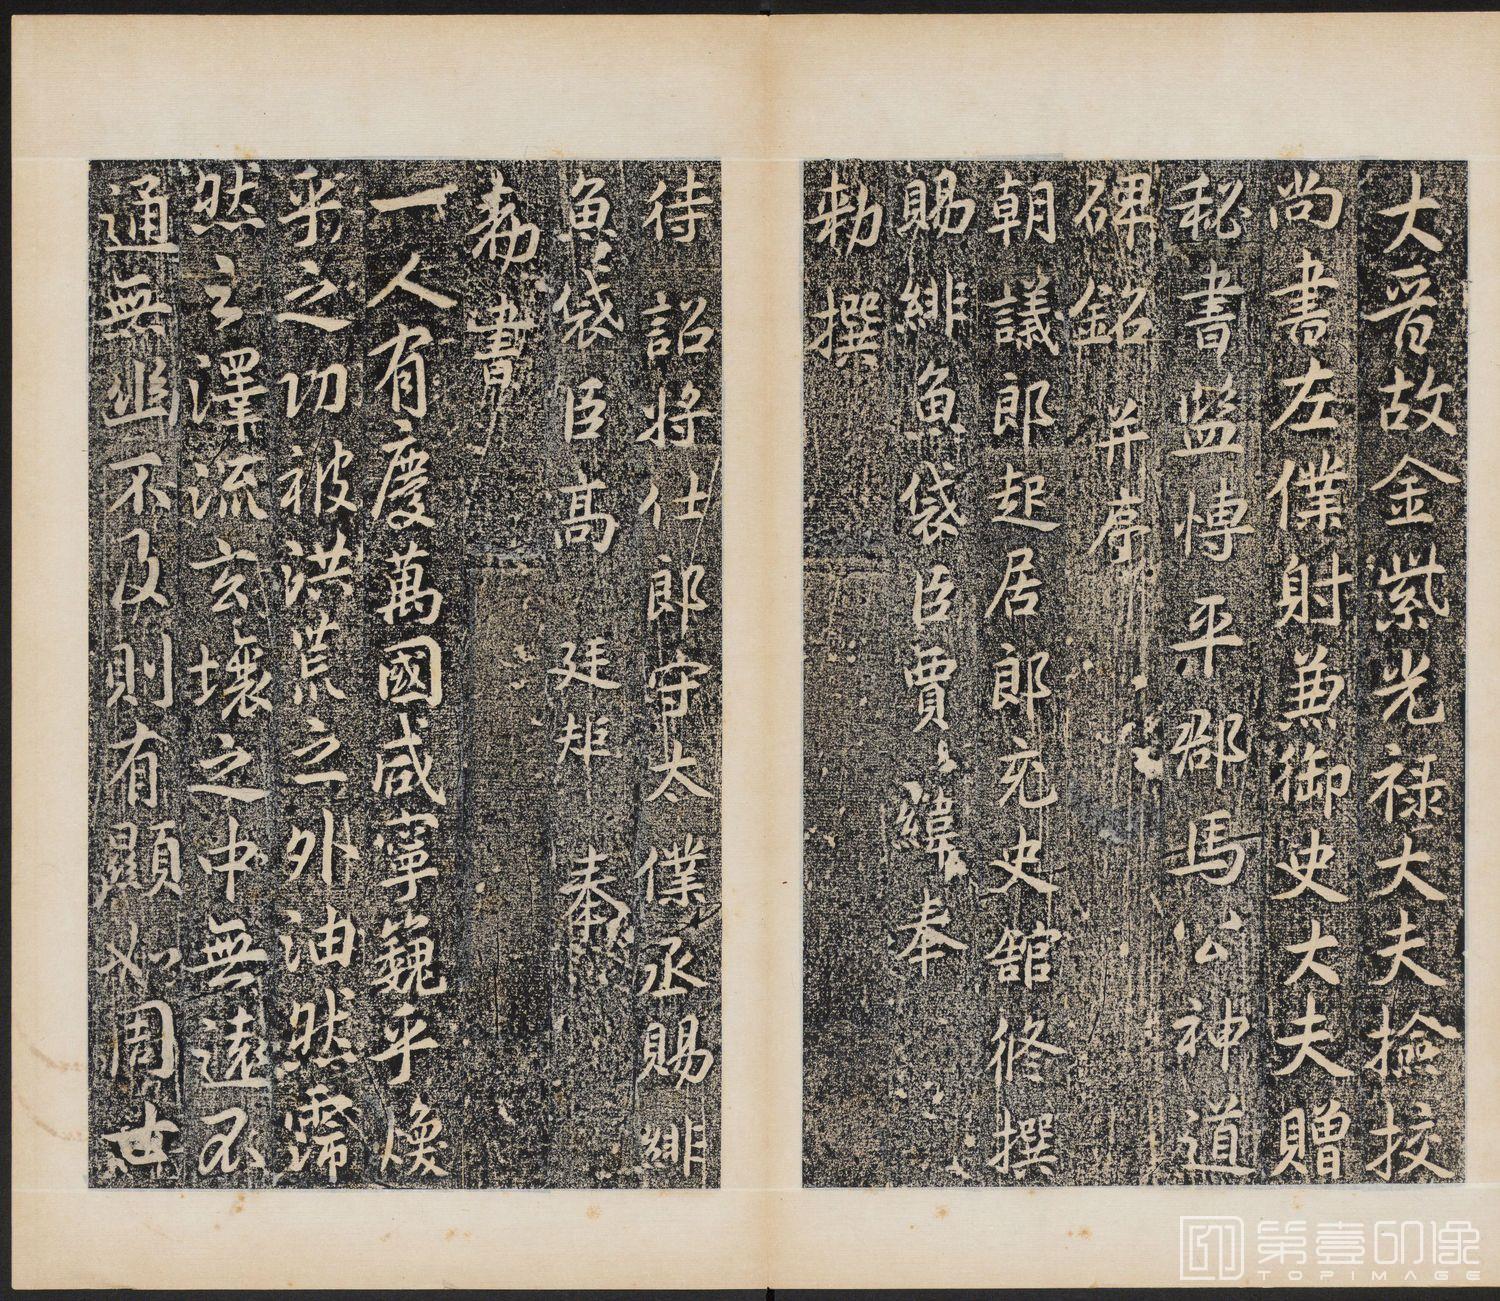 大晉故金紫光祿大夫撿挍
尚書左僕射兼御史大夫贈
秘書監博平郡馬公神道
碑銘并序
朝議郎起居郎充史館修撰
賜緋魚袋臣賈緯奉
勑撰
待詔將仕郎守太僕丞賜緋
魚袋臣高廷矩奉
勑書
一人有慶萬國咸寧巍乎煥
乎之功被洪荒之外油然霈
然之澤流玄壤之中無遠不
通無幽不及則有顯如周
第壹印像
TOPIMAGE